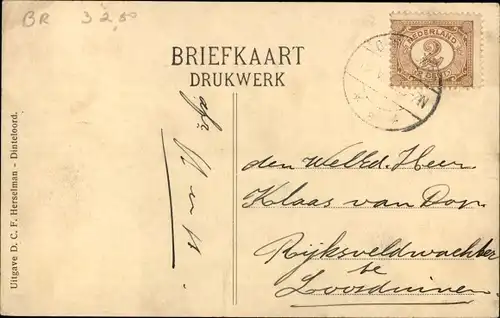 BR 32,50
BRIEFKAART
DRUKWERK
NEDERLAND
2
CENT
Uitgave D. C. F. Herselman - Dinteloord.
den Weled. Heer
Klaas van Dop.
Rijksveldwachter
te
Loosduinen